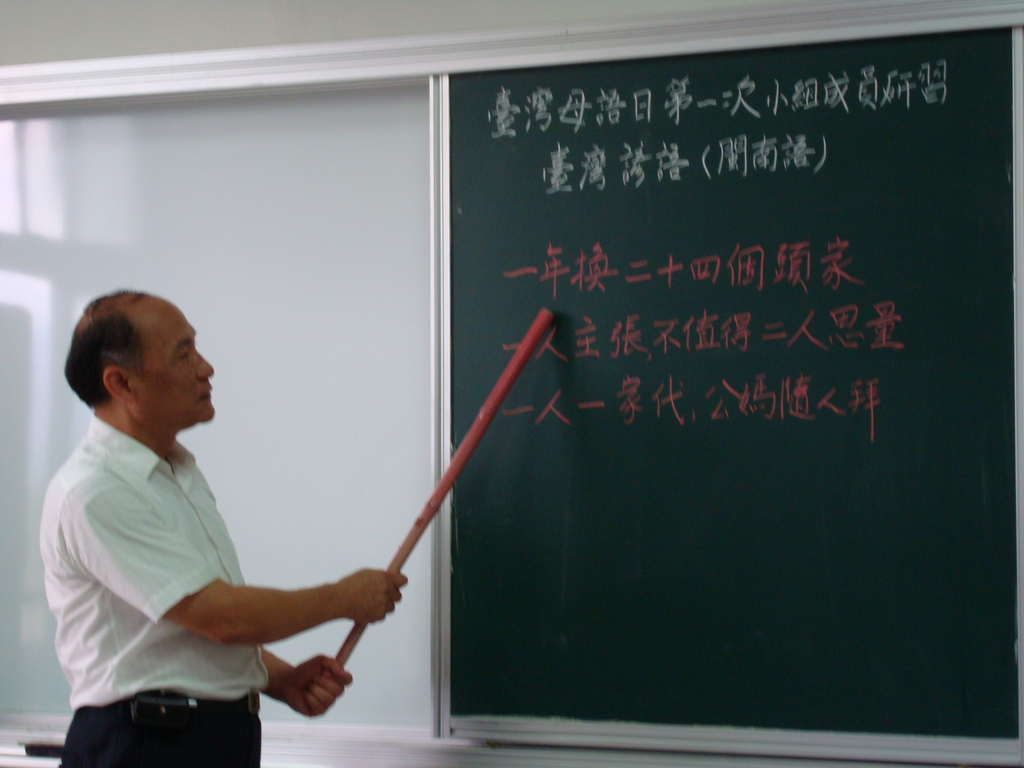 臺灣母語日第一次小組成員研習
臺灣諺語(閩南語)
一年換二十四個頭家
一人主張,不值得二人思量
一人一家代,公媽隨人拜